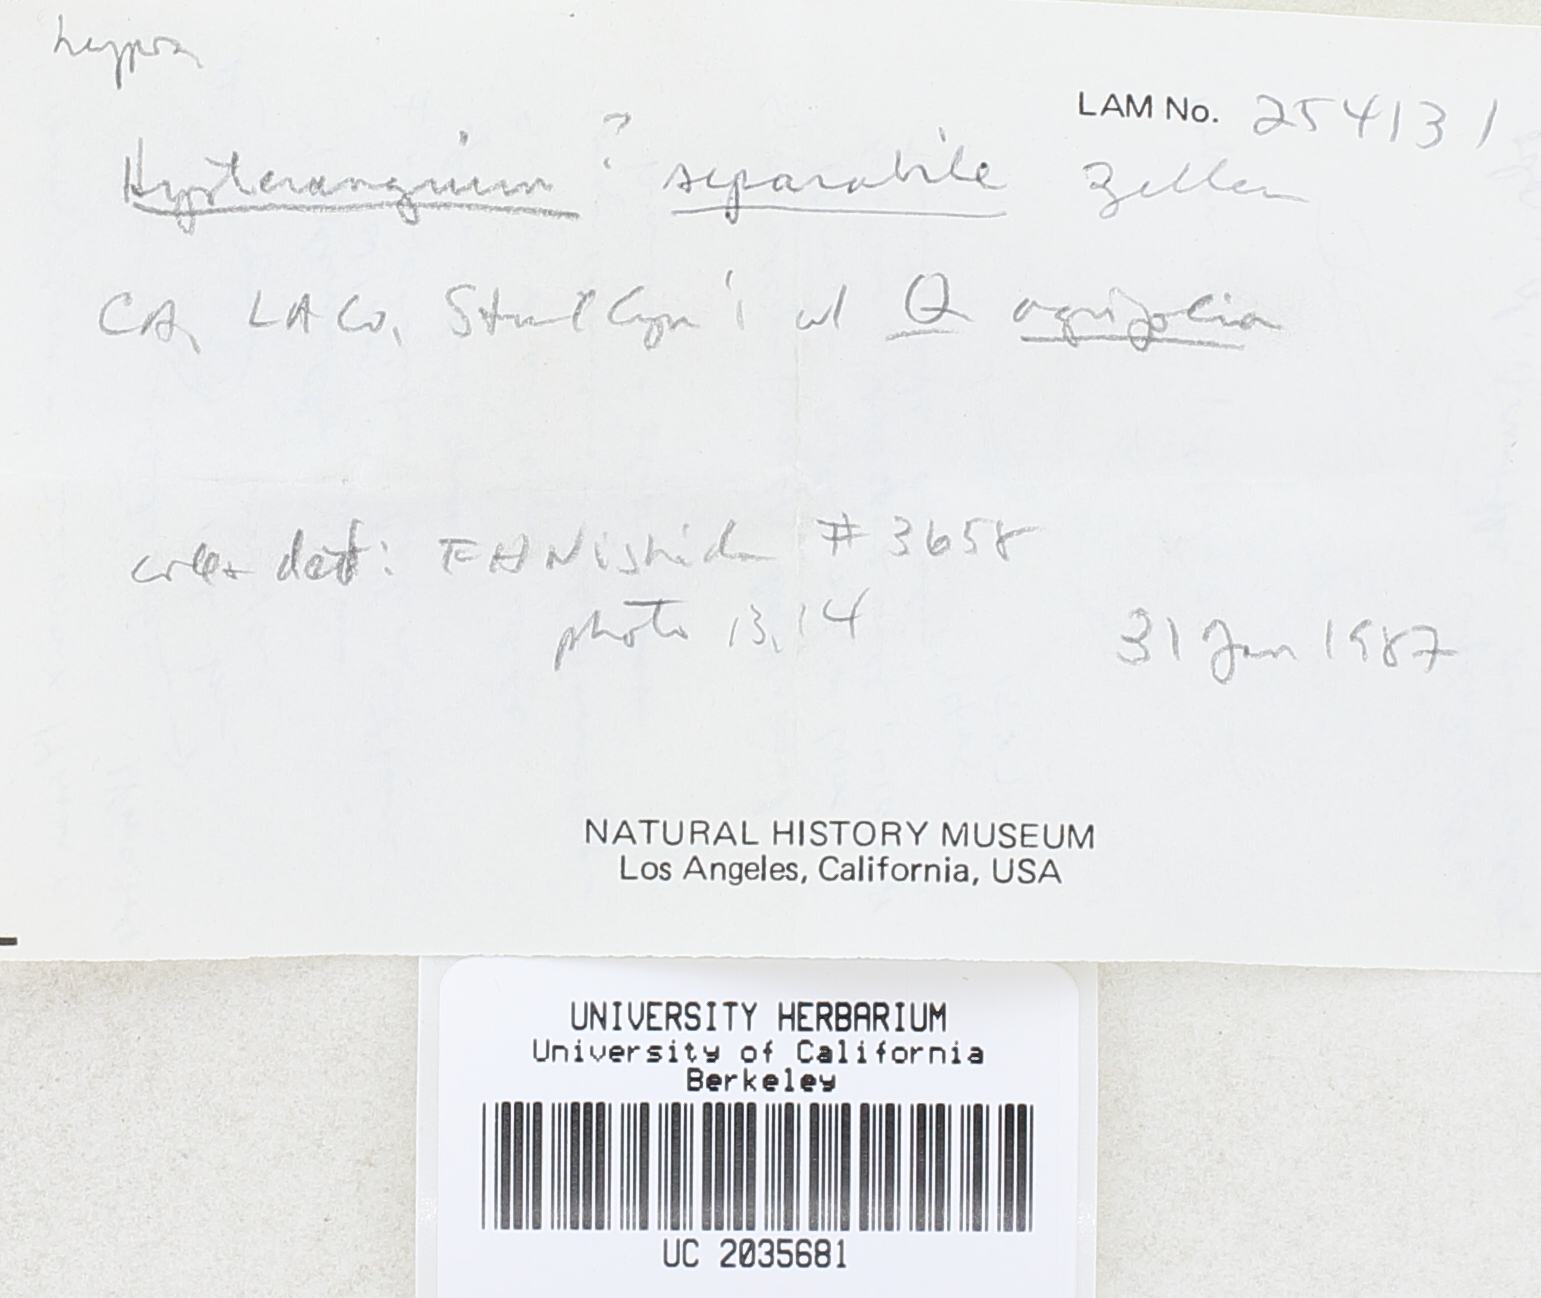 hypog
LAM No. 254131
Hysterangium ? separabile Zeller
CA, LA Co, Stunt Cyn; w/ Q agrifolia
coll + det: F H Nishida # 3658
photo 13, 14
31 Jan 1987
NATURAL HISTORY MUSEUM
Los Angeles, California, USA
UNIVERSITY HERBARIUM
University of California
Berkeley
UC 2035681